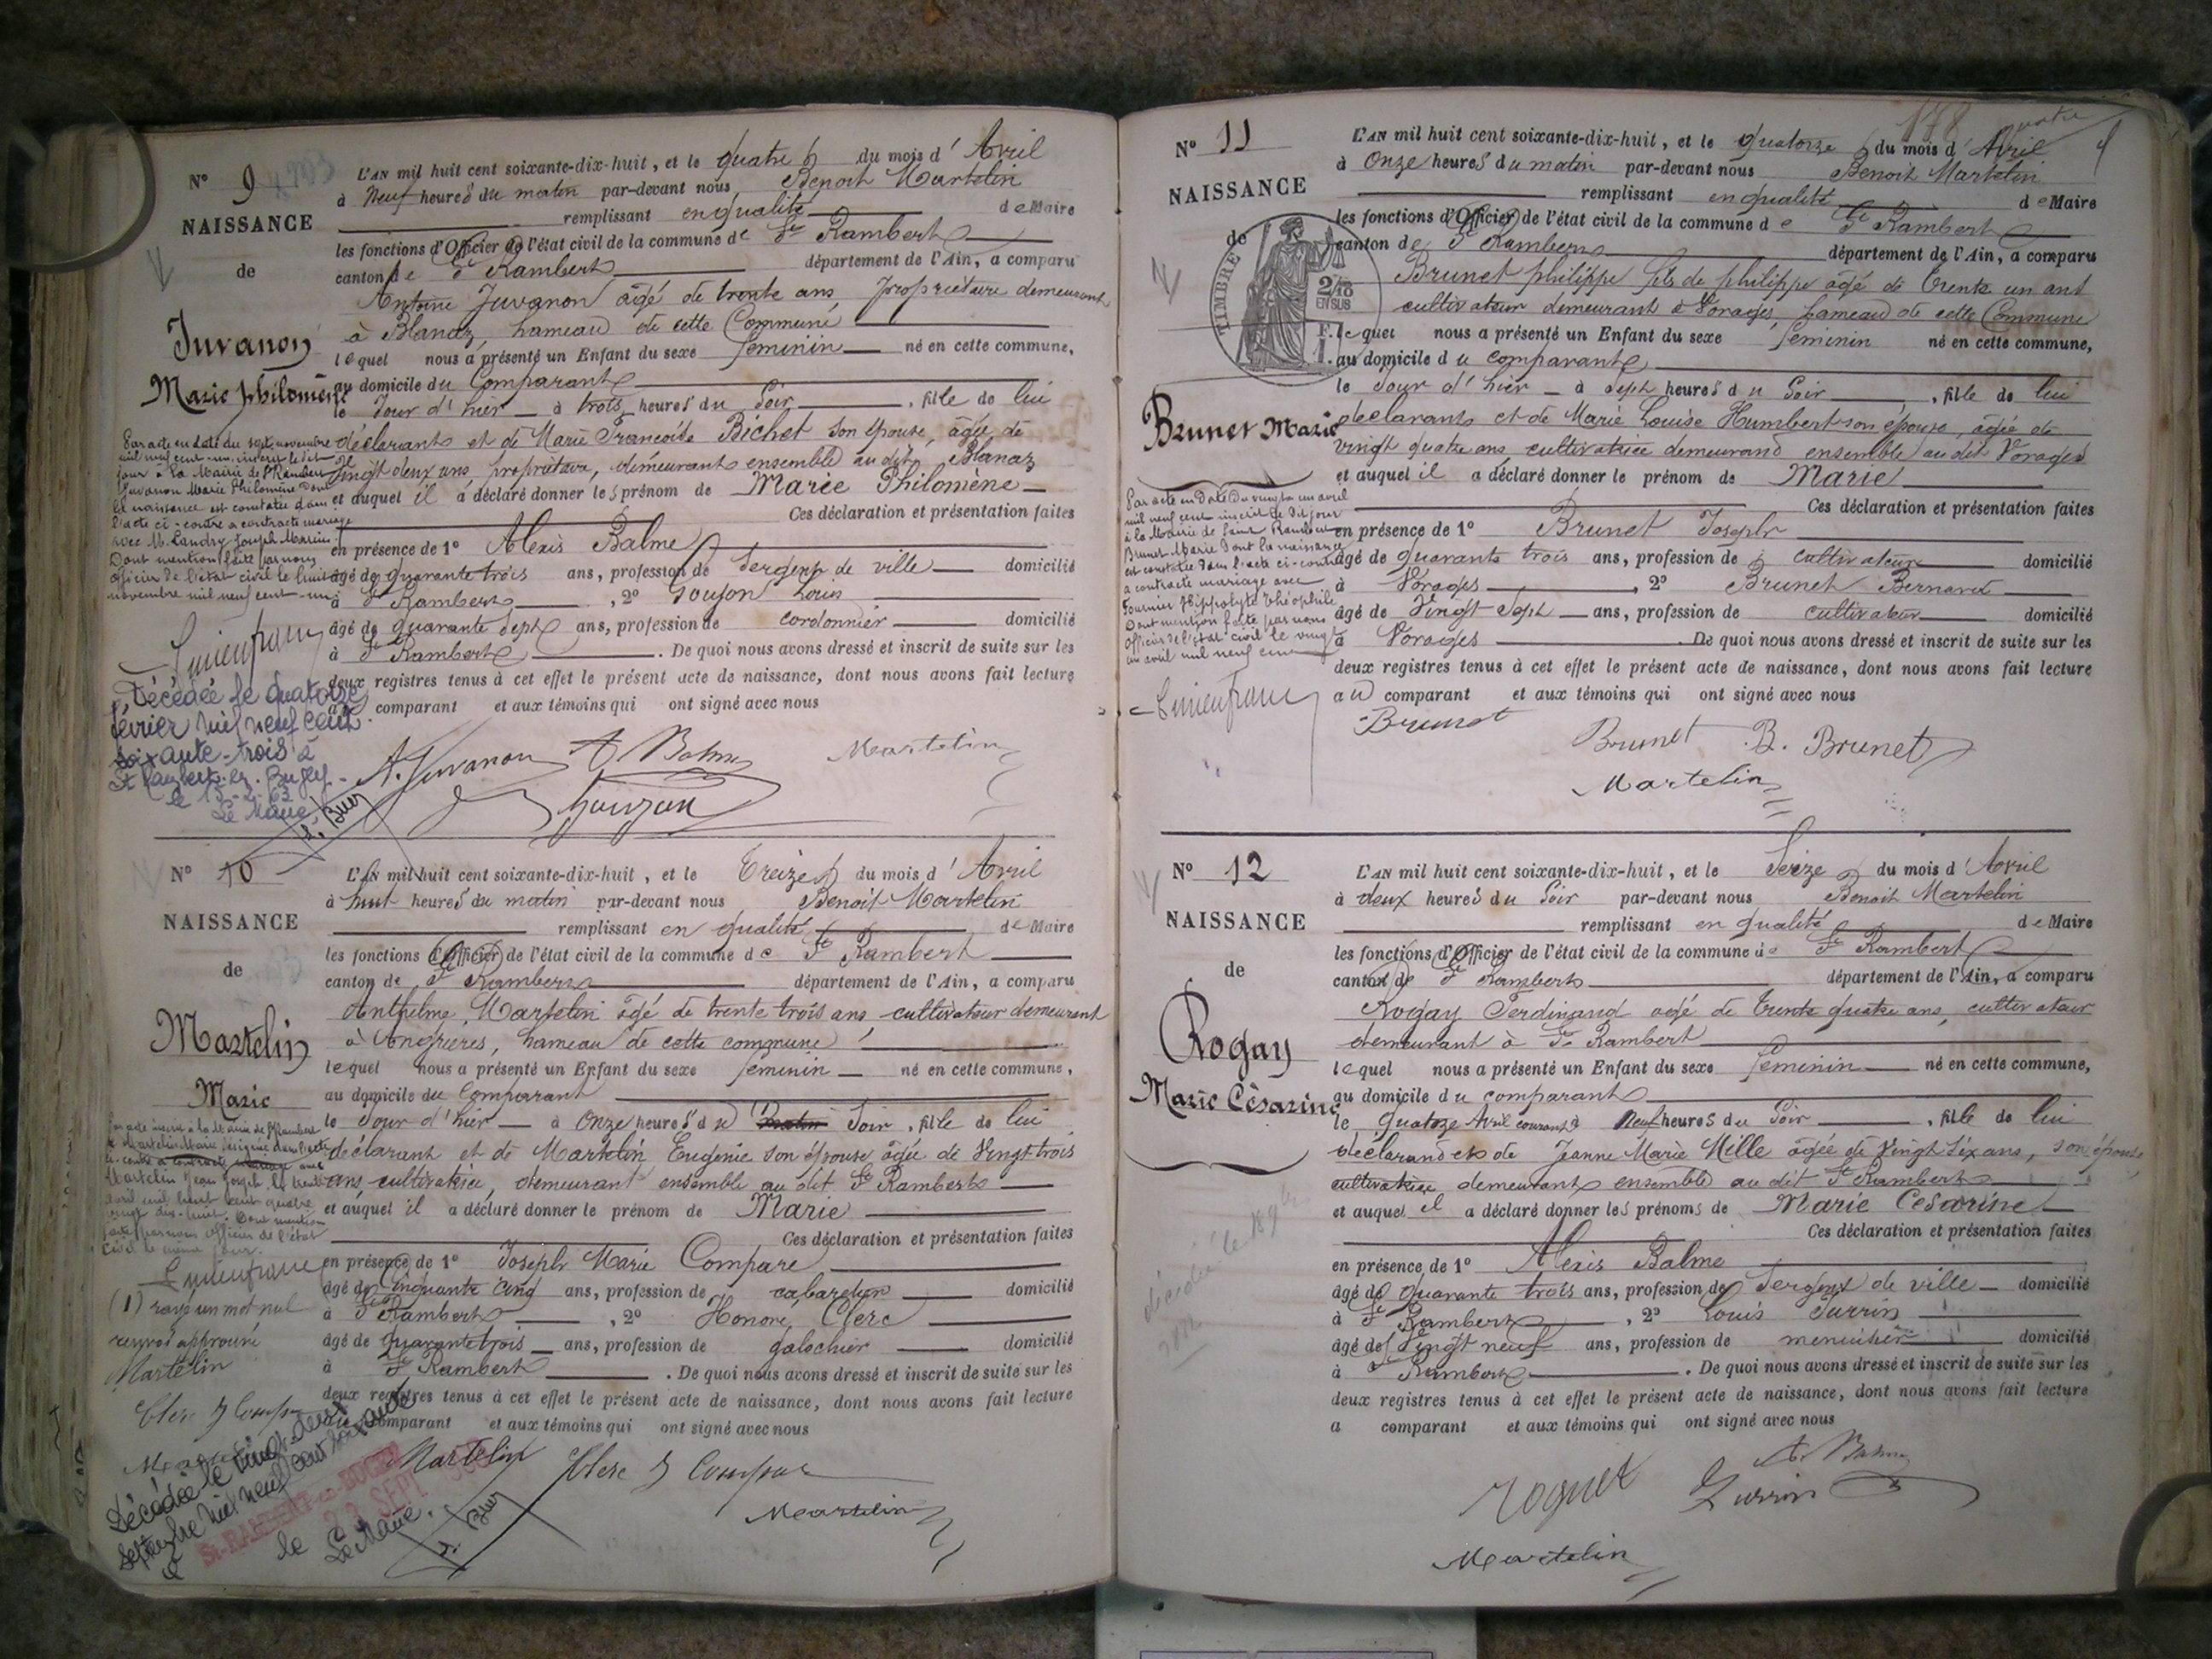 N° 9
NAISSANCE
de
Juvanon
Marie Philomène
L'AN mil huit cent soixante-dix-huit, et le quatre du mois d'Avril
à Neuf heures du matin par-devant nous Benoit Martelin
remplissant en qualité de Maire
les fonctions d'Officier de l'état civil de la commune de St Rambert
canton de St Rambert département de l'Ain, a comparu
Antoine Juvanon âgé de trente ans, propriétaire demeurant
à Blanaz, hameau de cette Commune
lequel nous a présenté un Enfant du sexe féminin né en cette commune,
au domicile du Comparant
le Jour d'hier à trois heures du Soir, fille de lui
déclarant et de Marie Françoise Bichet son épouse, âgée de
Vingt deux ans, propriétaire, demeurant ensemble au dit Blanaz
et auquel il a déclaré donner les prénom de Marie Philomène
Ces déclaration et présentation faites
en présence de 1° Alexis Balme
âgé de quarante trois ans, profession de Sergent de ville domicilié
à St Rambert, 2° Goujon Louis
âgé de quarante sept ans, profession de cordonnier domicilié
à St Rambert. De quoi nous avons dressé et inscrit de suite sur les
deux registres tenus à cet effet le présent acte de naissance, dont nous avons fait lecture
au comparant et aux témoins qui ont signé avec nous
A. Juvanon A Balme Martelin
Goujon
Par acte en date du sept novembre
mil neuf cent un, inscrit le dit
jour à la Mairie de St Rambert
Juvanon Marie Philomène dont
la naissance est constatée dans
l'acte ci-contre a contracté mariage
avec M. Landry Joseph Marius
Dont mention faite par nous
officier de l'état civil le huit
novembre mil neuf cent un
Décédée le quatorze
février mil neuf cent
soixante-trois à
St Rambert-en-Bugey
le 15-2-63
Le Maire,
N° 10
NAISSANCE
de
Martelin
Marie
L'AN mil huit cent soixante-dix-huit, et le Treize du mois d'Avril
à huit heures du matin par-devant nous Benoit Martelin
remplissant en qualité de Maire
les fonctions d'Officier de l'état civil de la commune de St Rambert
canton de St Rambert département de l'Ain, a comparu
Anthelme Martelin âgé de trente trois ans cultivateur demeurant
à Angrières, hameau de cette commune
lequel nous a présenté un Enfant du sexe féminin né en cette commune,
au domicile du Comparant
le Jour d'hier à Onze heures du Matin Soir, fille de lui
déclarant et de Martelin Eugénie son épouse âgée de Vingt trois
ans, cultivatrice, demeurant ensemble au dit St Rambert
et auquel il a déclaré donner le prénom de Marie
Ces déclaration et présentation faites
en présence de 1° Joseph Marie Compare
âgé de Cinquante Cinq ans, profession de cabaretier domicilié
à St Rambert, 2° Honoré Clerc
âgé de quarante trois ans, profession de galochier domicilié
à St Rambert. De quoi nous avons dressé et inscrit de suite sur les
deux registres tenus à cet effet le présent acte de naissance, dont nous avons fait lecture
au comparant et aux témoins qui ont signé avec nous
Martelin Clerc Compare
Martelin
Martelin Jean Joseph le trente
avril mil huit cent quatre
vingt dix-huit. Dont mention
faite par nous officier de l'état
civil le même jour.
(1) rayé un mot nul
renvoi approuvé
Martelin
Clerc Compare
Décédée le vingt-deux
septembre mil neuf cent soixante
à St-RAMBERT-en-BUGEY
le 23 SEPT
Le Maire.
178
N° 11
NAISSANCE
de
TIMBRE
2/10
EN SUS
Brunet Marie
L'AN mil huit cent soixante-dix-huit, et le quatorze du mois d'Avril
à Onze heures du matin par-devant nous Benoit Martelin
remplissant en qualité de Maire
les fonctions d'Officier de l'état civil de la commune de St Rambert
canton de St Rambert département de l'Ain, a comparu
Brunet philippe fils de philippe âgé de trente un ans
cultivateur demeurant à Vorages, hameau de cette Commune
lequel nous a présenté un Enfant du sexe féminin né en cette commune,
au domicile du comparant
le Jour d'hier à sept heures du Soir, fille de lui
déclarant et de Marie Louise Humbert son épouse, âgée de
vingt quatre ans, cultivatrice demeurand ensemble au dit Vorages
et auquel il a déclaré donner le prénom de Marie
Ces déclaration et présentation faites
en présence de 1° Brunet Joseph
âgé de quarante trois ans, profession de cultivateur domicilié
à Vorages, 2° Brunet Bernard
âgé de Vingt Sept ans, profession de cultivateur domicilié
à Vorages. De quoi nous avons dressé et inscrit de suite sur les
deux registres tenus à cet effet le présent acte de naissance, dont nous avons fait lecture
au comparant et aux témoins qui ont signé avec nous
Brunet Brunet B. Brunet
Martelin
Par acte en date du vingt un avril
mil neuf cent inscrit le dit jour
à la Mairie de Saint Rambert
Brunet Marie dont la naissance
est constatée dans l'acte ci-contre
a contracté mariage avec
Fournier Hippolyte Théophile
Dont mention faite par nous
officier de l'état civil le vingt
un avril mil neuf cent
N° 12
NAISSANCE
de
Rogay
Marie Césarine
L'AN mil huit cent soixante-dix-huit, et le Seize du mois d'Avril
à deux heures du Soir par-devant nous Benoit Martelin
remplissant en qualité de Maire
les fonctions d'Officier de l'état civil de la commune de St Rambert
canton de St Rambert département de l'Ain, a comparu
Rogay Ferdinand âgé de trente quatre ans, cultivateur
demeurant à St Rambert
lequel nous a présenté un Enfant du sexe féminin né en cette commune,
au domicile du comparant
le quatorze Avril courant à Neuf heures du Soir, fille de lui
déclarand et de Jeanne Marie Mille âgée de Vingt Six ans, son épouse,
cultivatrice demeurant ensemble au dit St Rambert
et auquel il a déclaré donner les prénoms de Marie Césarine
Ces déclaration et présentation faites
en présence de 1° Alexis Balme
âgé de quarante trois ans, profession de Sergent de ville domicilié
à St Rambert, 2° Louis Surrin
âgé de Vingt neuf ans, profession de menuisier domicilié
à St Rambert. De quoi nous avons dressé et inscrit de suite sur les
deux registres tenus à cet effet le présent acte de naissance, dont nous avons fait lecture
a comparant et aux témoins qui ont signé avec nous
A. Balme
Roguet Surrin
Martelin